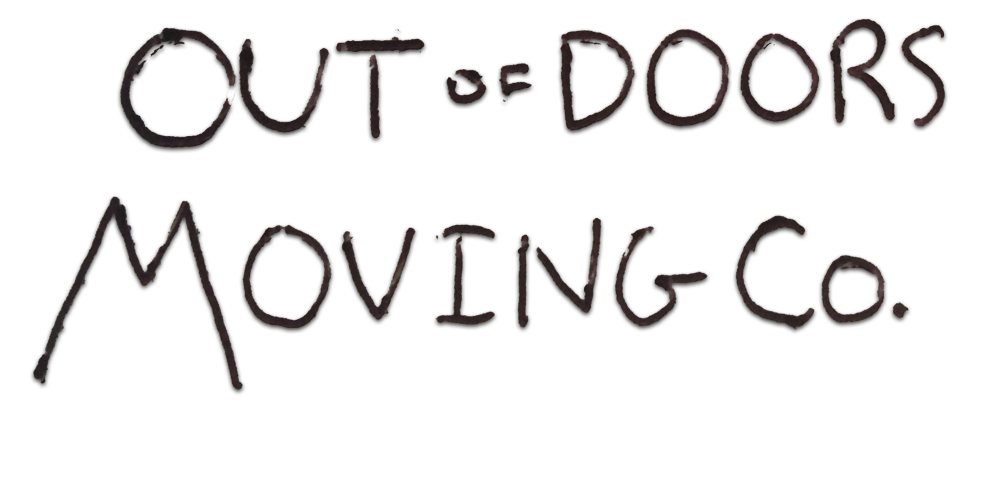 OUT OF DOORS
MOVING CO.